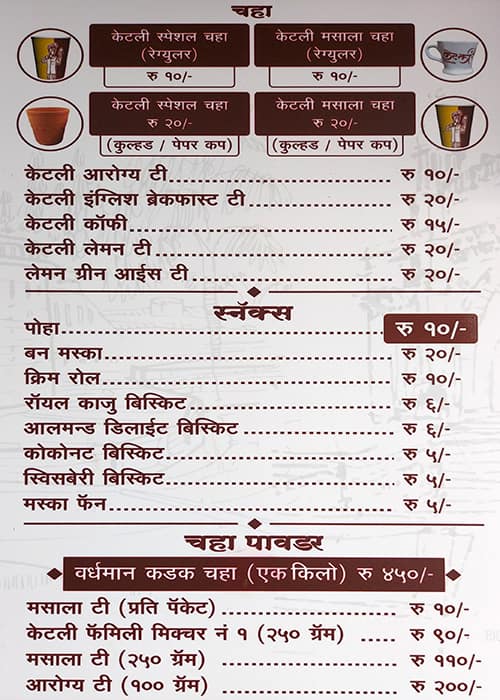 चहा
केटली स्पेशल चहा
(रेग्युलर)
रु १०/-
केटली मसाला चहा
(रेग्युलर)
रु १०/-
केटली स्पेशल चहा
रु २०/-
(कुल्हड / पेपर कप)
केटली मसाला चहा
रु २०/-
(कुल्हड / पेपर कप)
केटली आरोग्य टी........ रु १०/-
केटली इंग्लिश ब्रेकफास्ट टी........ रु २०/-
केटली कॉफी........ रु १५/-
केटली लेमन टी........ रु २०/-
लेमन ग्रीन आईस टी........ रु २०/-
स्नॅक्स
पोहा........ रु १०/-
बन मस्का........ रु २०/-
क्रिम रोल........ रु १०/-
रॉयल काजु बिस्किट........ रु ६/-
आलमन्ड डिलाईट बिस्किट........ रु ६/-
कोकोनट बिस्किट........ रु ५/-
स्विसबेरी बिस्किट........ रु ५/-
मस्का फॅन........ रु ५/-
चहा पावडर
वर्धमान कडक चहा (एक किलो) रु ४५०/-
मसाला टी (प्रति पॅकेट)........ रु १०/-
केटली फॅमिली मिक्चर नं १ (२५० ग्रॅम) ..... रु ९०/-
मसाला टी (२५० ग्रॅम)........ रु ११०/-
आरोग्य टी (१०० ग्रॅम)........ रु २००/-